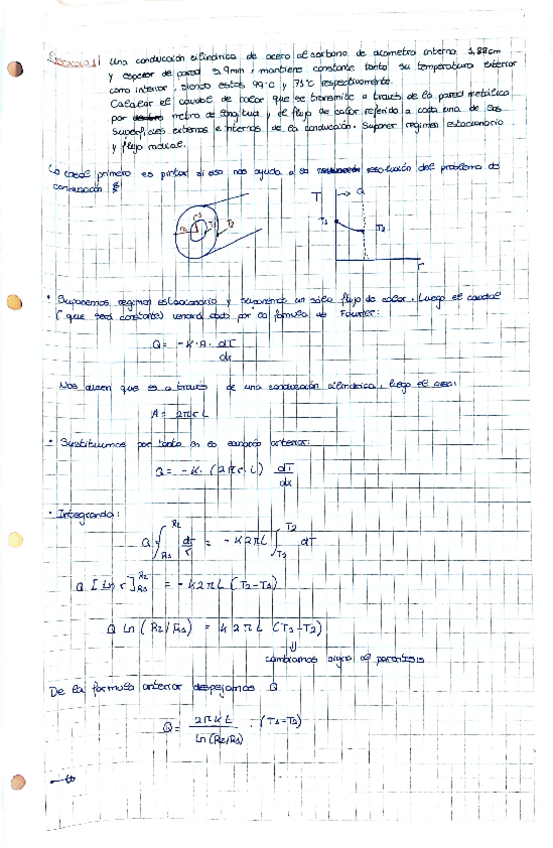 Ejercicio 1 | Una conducción cilíndrica de acero al carbono de diametro interno 1,88cm
y espesor de pared 3,9mm, mantiene constante tanto su temperatura exterior
como interior, siendo estas 99ºC y 75ºC respectivamente.
Calcular el caudal de calor que se transmite a través de la pared metálica
por metro de longitud, y el flujo de calor referido a cada una de las
superficies externas e internas de la conducción. Suponer regimen estacionario
y flujo radial.
Lo ideal primero es pintar si eso nos ayuda a la resolución del problema a
continuación
T → Q
T1 T2
r
• Suponemos regimen estacionario y suponemos un solo flujo de calor, luego el caudal
(que será constante) vendrá dado por la fórmula de Fourier:
Q = -K·A· dT
dx
Nos dicen que es a través de una conducción cilíndrica, luego el area:
A = 2πrL
• Sustituimos por tanto en la ecuación anterior:
Q = -K· (2πr·L) dT
dx
• Integrando:
Q ∫R1 R2 dr/r = -K2πL ∫T1 T2 dT
Q [Ln r]R1 R2 = -K2πL (T2-T1)
Q Ln (R2/R1) = K2πL (T1-T2)
⇓
cambiamos signo al parentesis
De la formula anterior despejamos Q
Q = 2πKL · (T1-T2)
Ln(R2/R1)